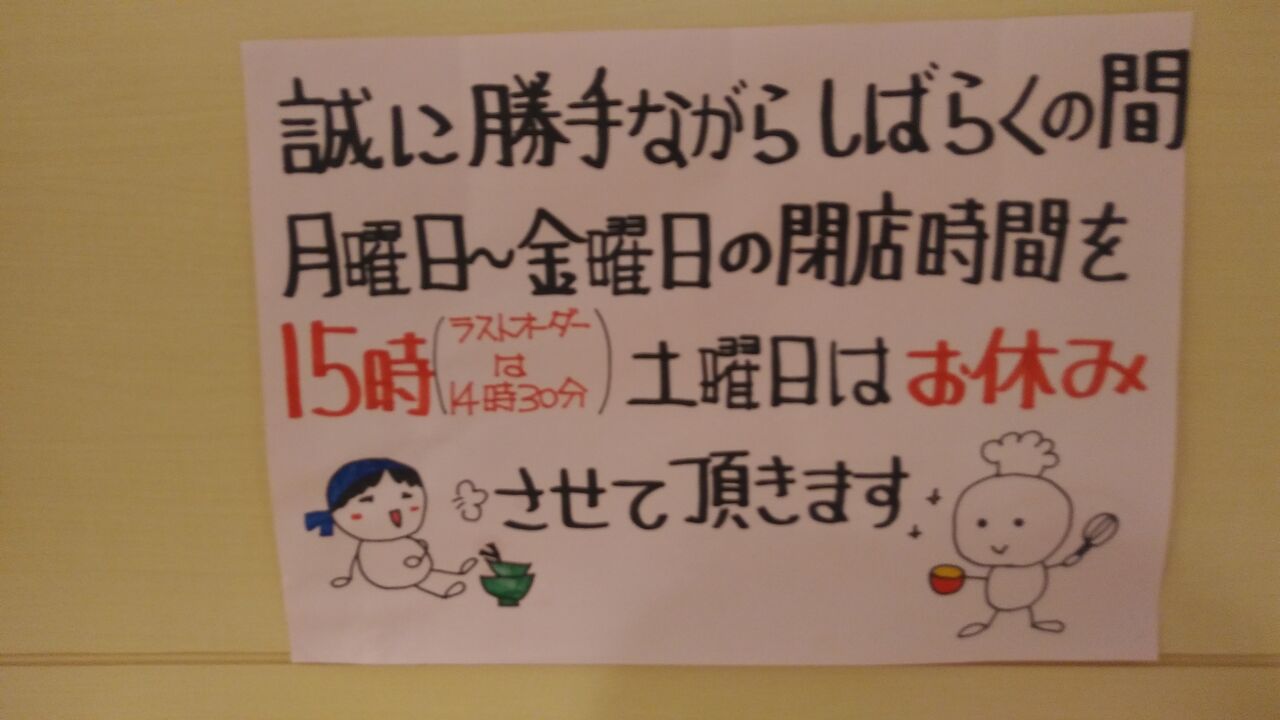 誠に勝手ながらしばらくの間
月曜日～金曜日の閉店時間を
15時(ラストオーダーは14時30分) 土曜日はお休み
させて頂きます